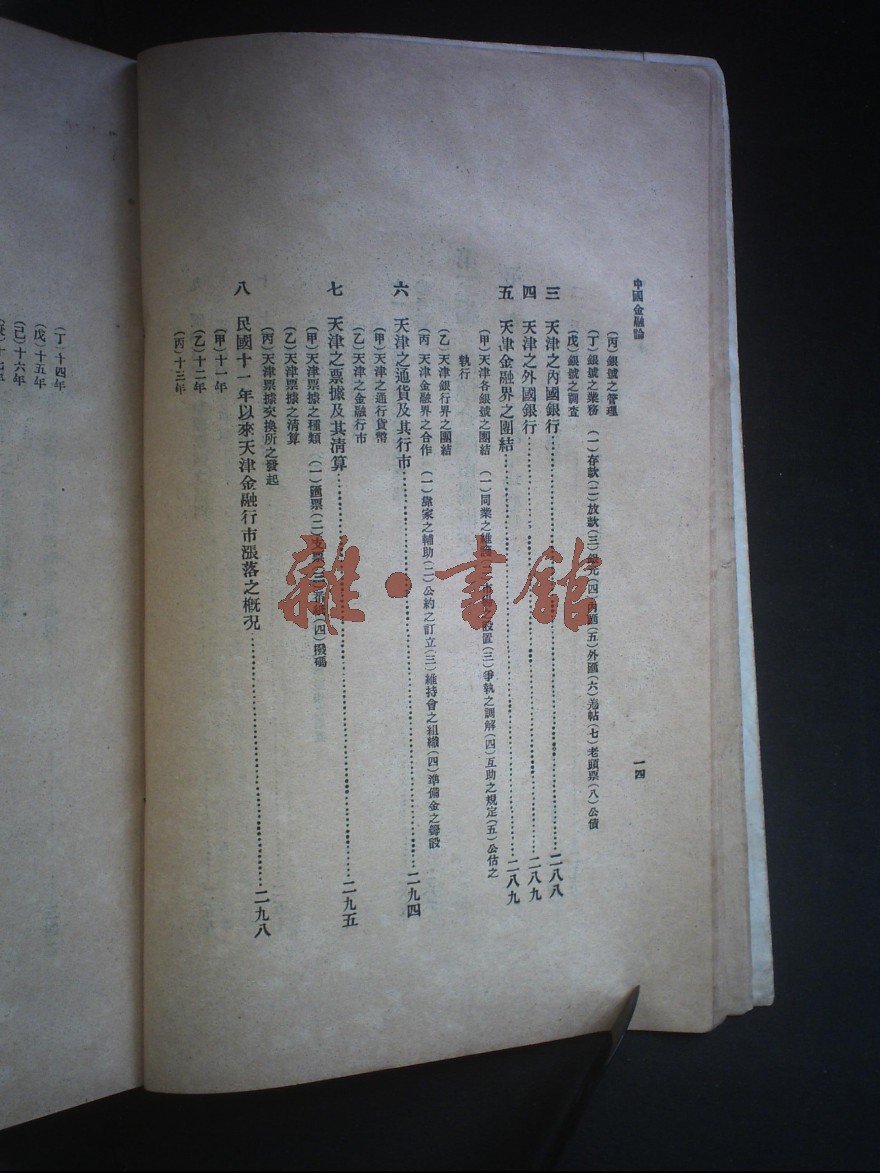 中國金融論
一四
(丙)銀號之管理
(丁)銀號之業務 (一)存款(二)放款(三)銀元(四)內匯(五)外匯(六)老頭票(八)公債
(戊)銀號之調查
三 天津之內國銀行……二八八
四 天津之外國銀行……二八九
五 天津金融界之團結……二八九
(甲)天津各銀號之團結 (一)同業之維 設置(三)爭執之調解(四)互助之規定(五)公估之
執行
(乙)天津銀行界之團結
(丙)天津金融界之合作 (一)輔助(二)公約之訂立(三)維持會之組織(四)準備金之籌設
六 天津之通貨及其行市……二九四
(甲)天津之通行貨幣
(乙)天津之金融行市
七 天津之票據及其清算……二九五
(甲)天津票據之種類 (一)匯票(二)支票(四)撥碼
(乙)天津票據之清算
(丙)天津票據交換所之發起
八 民國十一年以來天津金融行市漲落之概况……二九八
(甲)十一年
(乙)十二年
(丙)十三年
(丁)十四年
(戊)十五年
(己)十六年
雜·書館